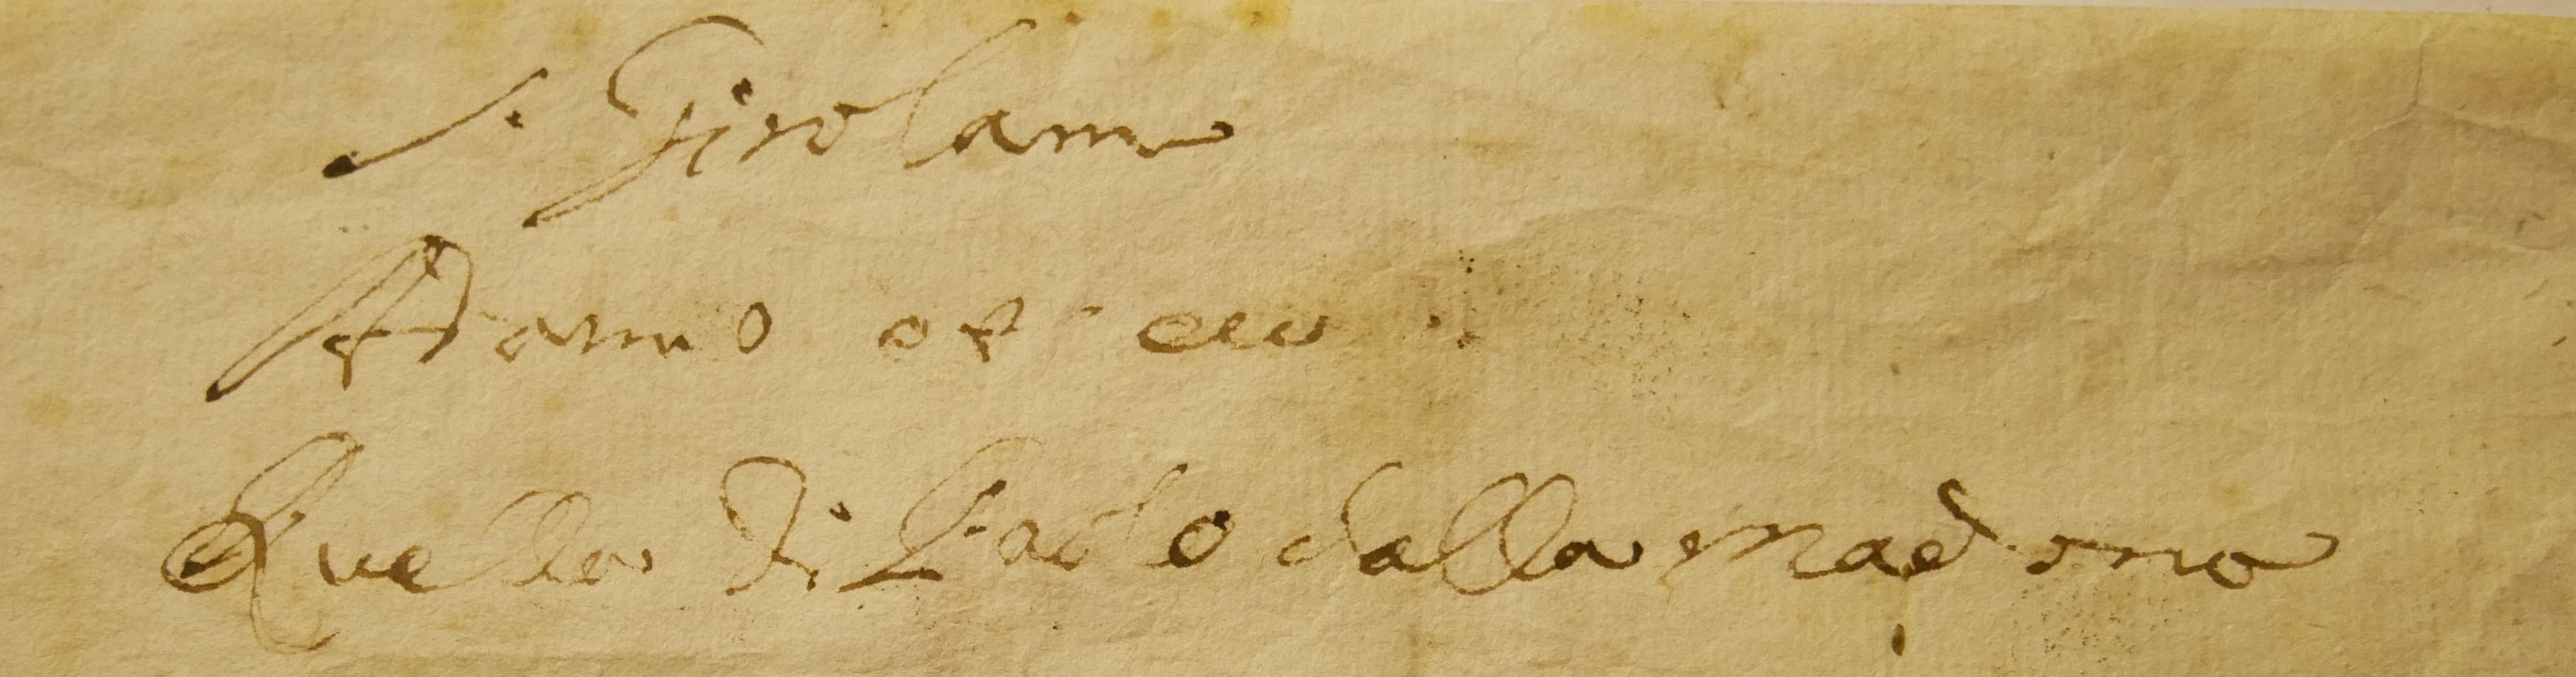 S. Girolamo
Adamo et eva
Quella di Paolo dalla madona